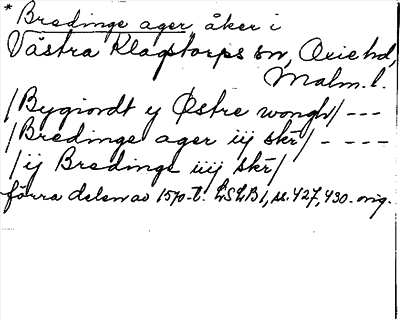 * Bredinge ager åker i
Västra Klagstorps sn, Oxie hd,
Malm. l.
/Bygiordt y Østre wongh/ ---
/Bredinge ager iij skr/ ----
/ij Bredinge iiij skr/
förra delen av 1570-t. LSLB 1, ss. 427, 430. orig.